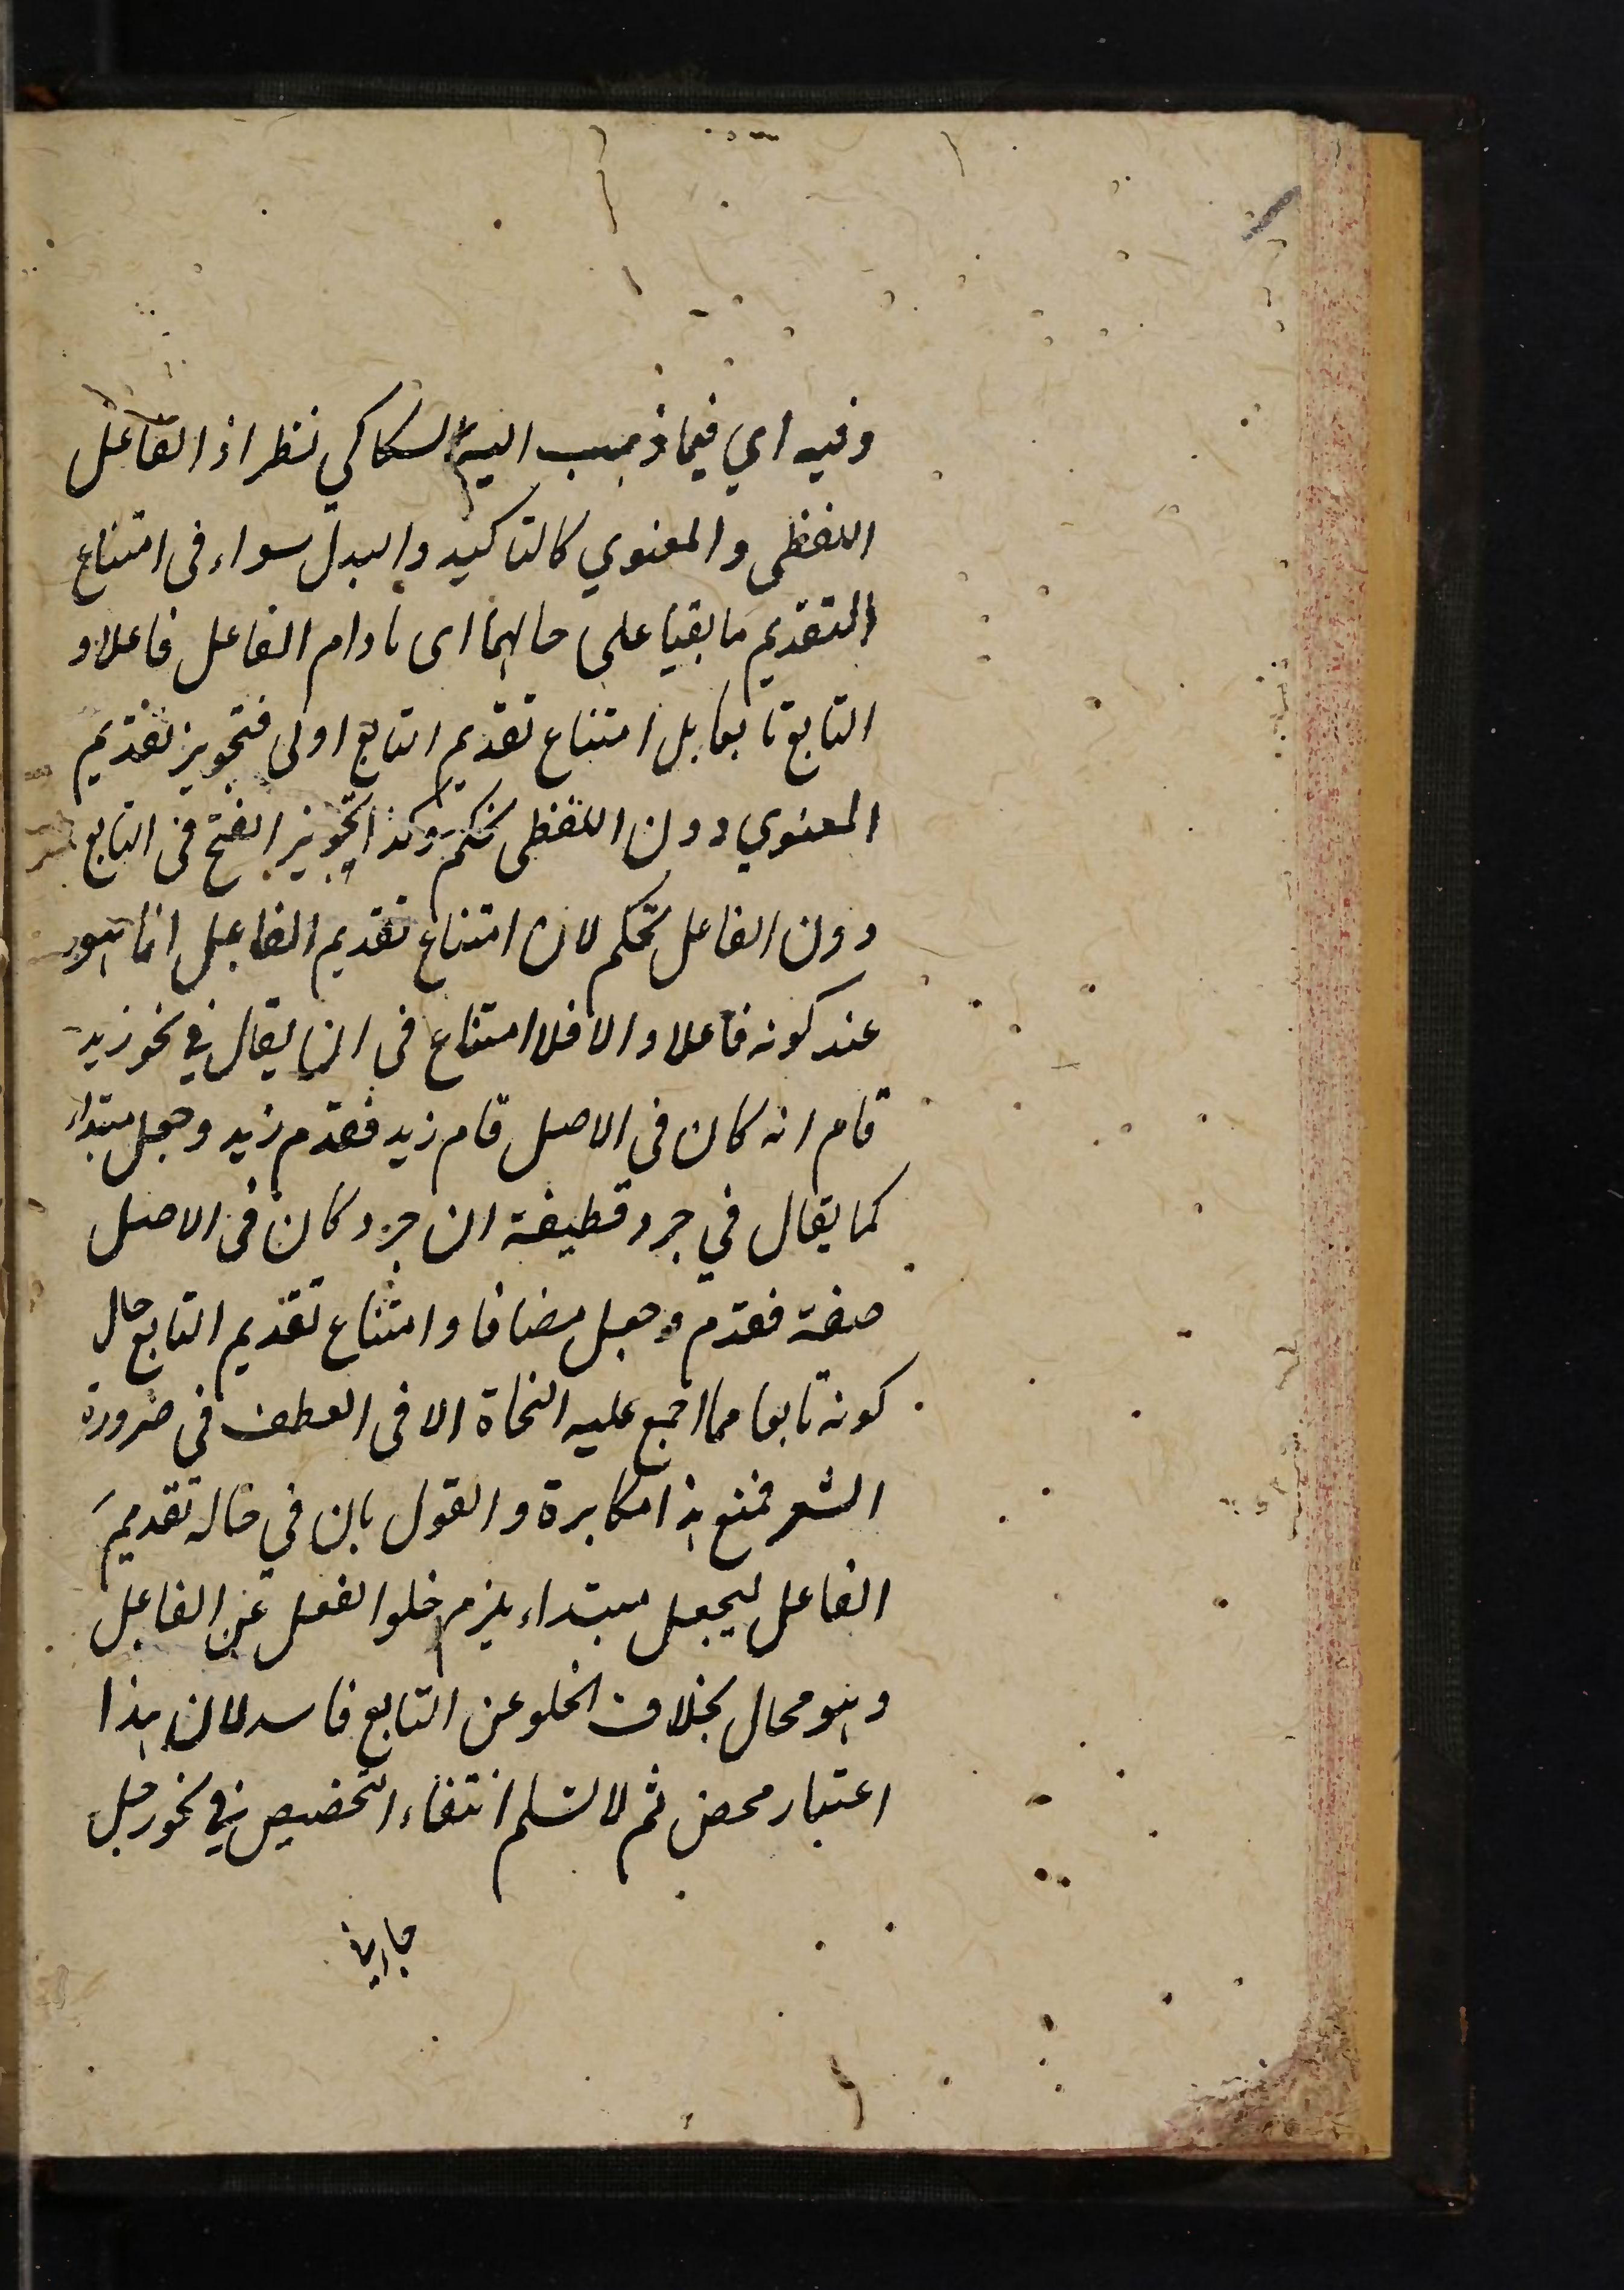 وفيه اي فيما ذهب اليه السكاكي نظر اذ الفاعل
اللفظي والمعنوي كالتاكيد والبدل سواء في امتناع
التقديم ما بقيا على حالهما اى ما دام الفاعل فاعلا و
التابع تابعا بل امتناع تقديم التابع اولى فتجويز تقديم
المعنوي دون اللفظى تحكم وكذا تجويز الفسخ في التابع
دون الفاعل تحكم لان امتناع تقديم الفاعل انما هو
عند كونه فاعلا والا فلا امتناع في ان يقال في نحو زيد
قام انه كان في الاصل قام زيد فقدم زيد وجعل مبتداء
كما يقال في جرد قطيفة ان جرد كان في الاصل
صفة فقدم وجعل مضافا وامتناع تقديم التابع حال
كونه تابعا مما اجمع عليه النحاة الا في العطف في ضرورة
الشعر فمنع هذا مكابرة والقول بان في حاله تقديم
الفاعل ليجعل مبتداء يلزم خلو الفعل عن الفاعل
وهو محال بخلاف الخلو عن التابع فاسد لان هذا
اعتبار محض ثم لا نسلم انتفاء التخصيص في نحو رجل